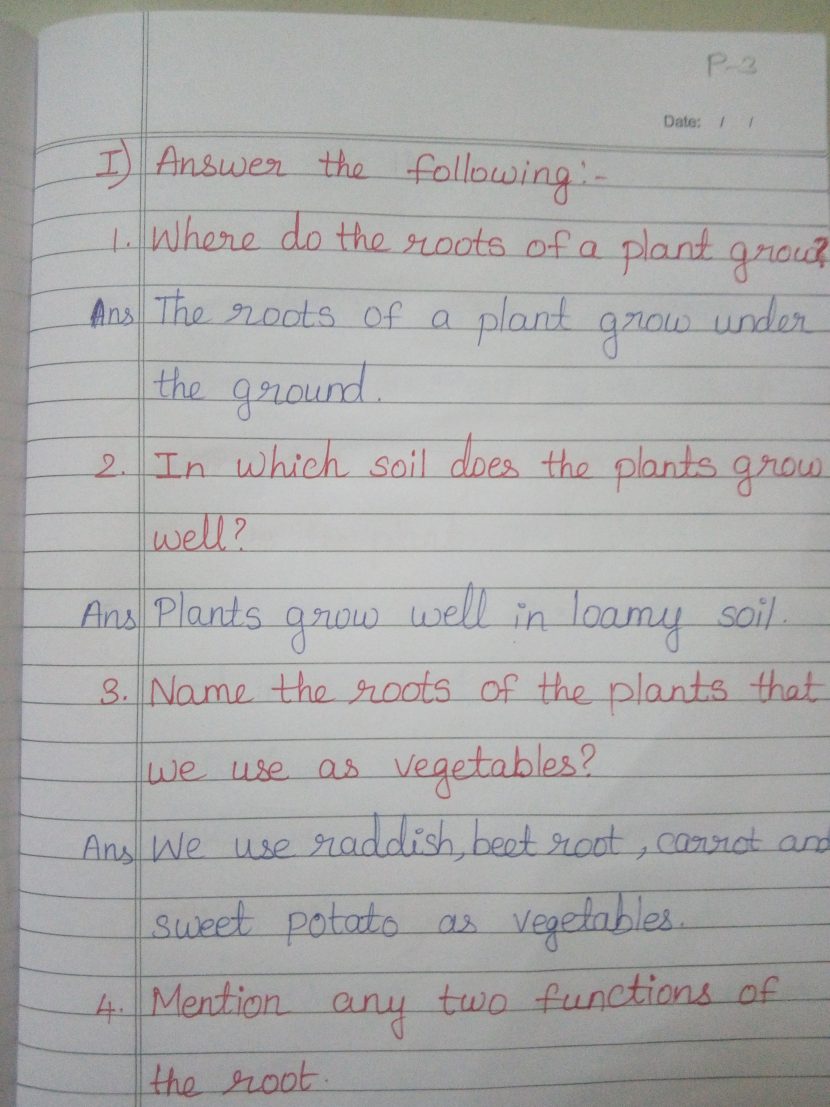 P-3
Date: / /
I) Answer the following:-
1. Where do the roots of a plant grow?
Ans The roots of a plant grow under
the ground.
2. In which soil does the plants grow
well?
Ans Plants grow well in loamy soil.
3. Name the roots of the plants that
we use as vegetables?
Ans We use raddish, beet root, carrot and
sweet potato as vegetables.
4. Mention any two functions of
the root.